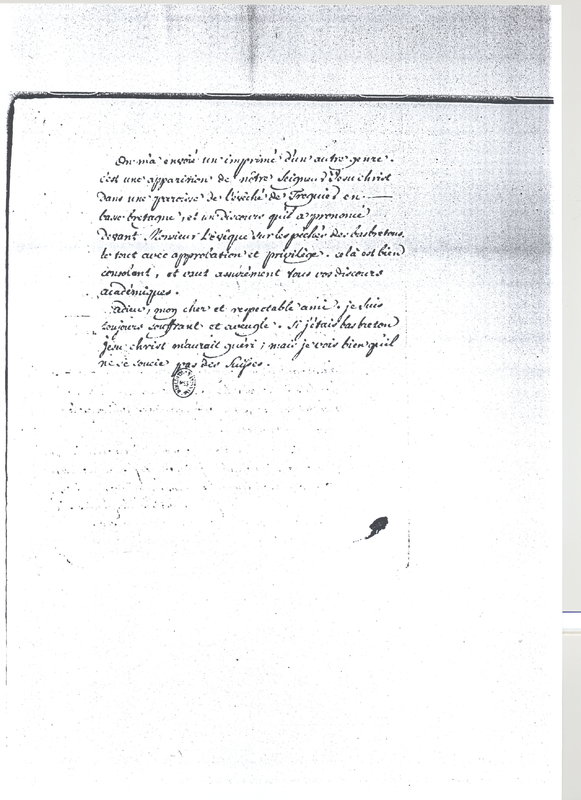 On m'a envoié un imprimé d'un autre genre.
c'est une apparition de nôtre Seigneur Jesu christ
dans une paroisse de l'evêché de Treguier en
basse bretagne, et un discours qu'il a prononcé
devant Monsieur L'evêque sur les péchés des basbretons.
le tout avec approbation et privilège. cela est bien
consolant, et vaut assurément tous vos discours
académiques.
adieu, mon cher et respectable ami. je suis
toujours souffrant et aveugle. Si j'étais basbreton
Jesu christ m'aurait guéri; mais je vois bien qu'il
ne se soucie pas des Suisses.